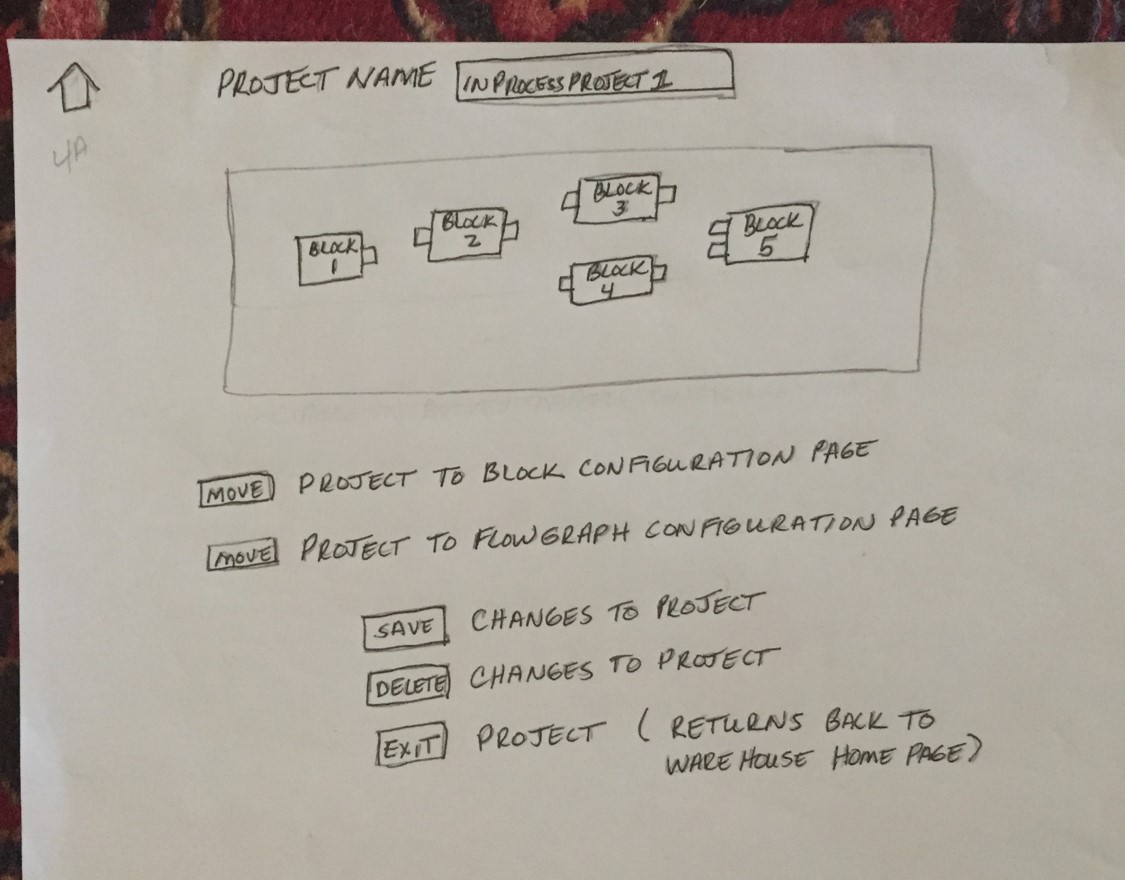 PROJECT NAME INPROCESSPROJECT1
4A
BLOCK
1
BLOCK
2
BLOCK
3
BLOCK
4
BLOCK
5
MOVE PROJECT TO BLOCK CONFIGURATION PAGE
MOVE PROJECT TO FLOWGRAPH CONFIGURATION PAGE
SAVE CHANGES TO PROJECT
DELETE CHANGES TO PROJECT
EXIT PROJECT ( RETURNS BACK TO
WAREHOUSE HOME PAGE)